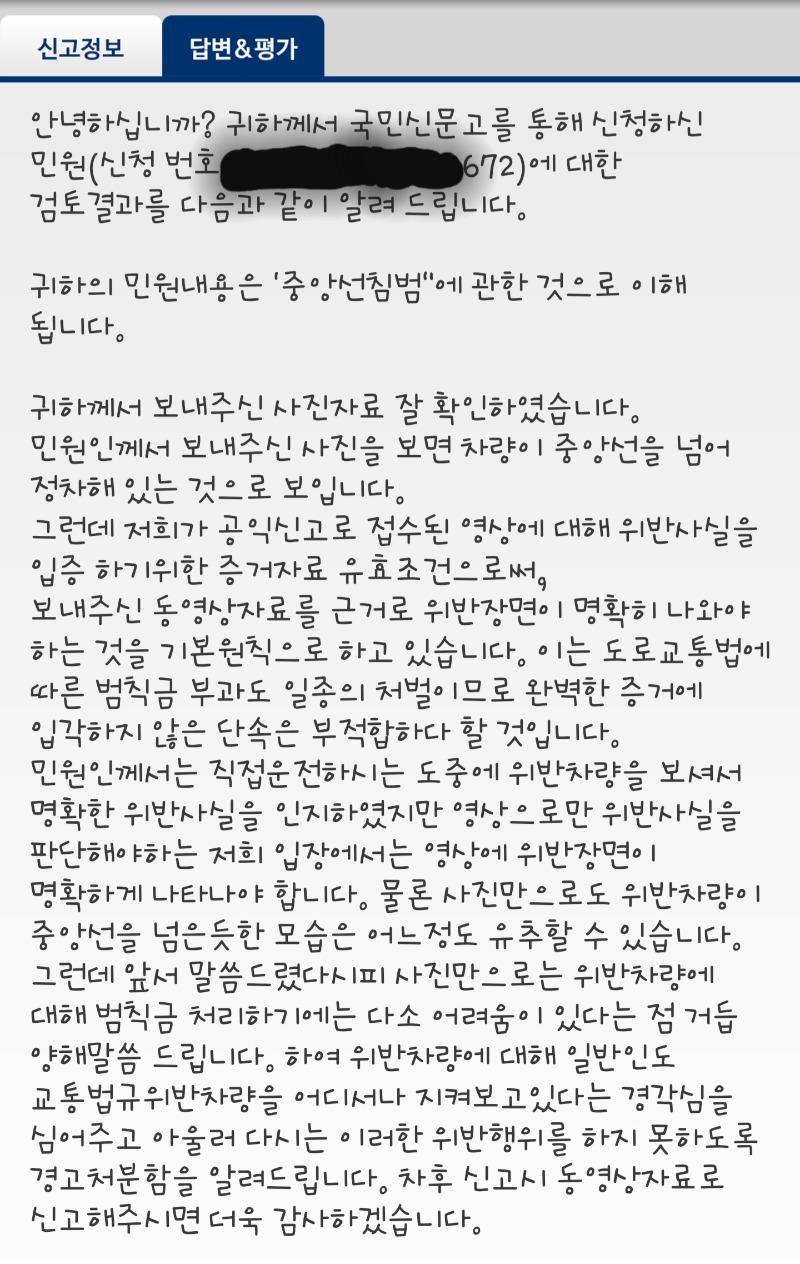 신고정보
답변&평가
안녕하십니까? 귀하께서 국민신문고를 통해 신청하신
민원(신청 번호 672)에 대한
검토결과를 다음과 같이 알려 드립니다.
귀하의 민원내용은 '중앙선침범"에 관한 것으로 이해
됩니다.
귀하께서 보내주신 사진자료 잘 확인하였습니다.
민원인께서 보내주신 사진을 보면 차량이 중앙선을 넘어
정차해 있는 것으로 보입니다.
그런데 저희가 공익신고로 접수된 영상에 대해 위반사실을
입증 하기위한 증거자료 유효조건으로써,
보내주신 동영상자료를 근거로 위반장면이 명확히 나와야
하는 것을 기본원칙으로 하고 있습니다. 이는 도로교통법에
따른 범칙금 부과도 일종의 처벌이므로 완벽한 증거에
입각하지 않은 단속은 부적합하다 할 것입니다.
민원인께서는 직접운전하시는 도중에 위반차량을 보셔서
명확한 위반사실을 인지하였지만 영상으로만 위반사실을
판단해야하는 저희 입장에서는 영상에 위반장면이
명확하게 나타나야 합니다. 물론 사진만으로도 위반차량이
중앙선을 넘은듯한 모습은 어느정도 유추할 수 있습니다.
그런데 앞서 말씀드렸다시피 사진만으로는 위반차량에
대해 범칙금 처리하기에는 다소 어려움이 있다는 점 거듭
양해말씀 드립니다. 하여 위반차량에 대해 일반인도
교통법규위반차량을 어디서나 지켜보고있다는 경각심을
심어주고 아울러 다시는 이러한 위반행위를 하지 못하도록
경고처분함을 알려드립니다. 차후 신고시 동영상자료로
신고해주시면 더욱 감사하겠습니다.